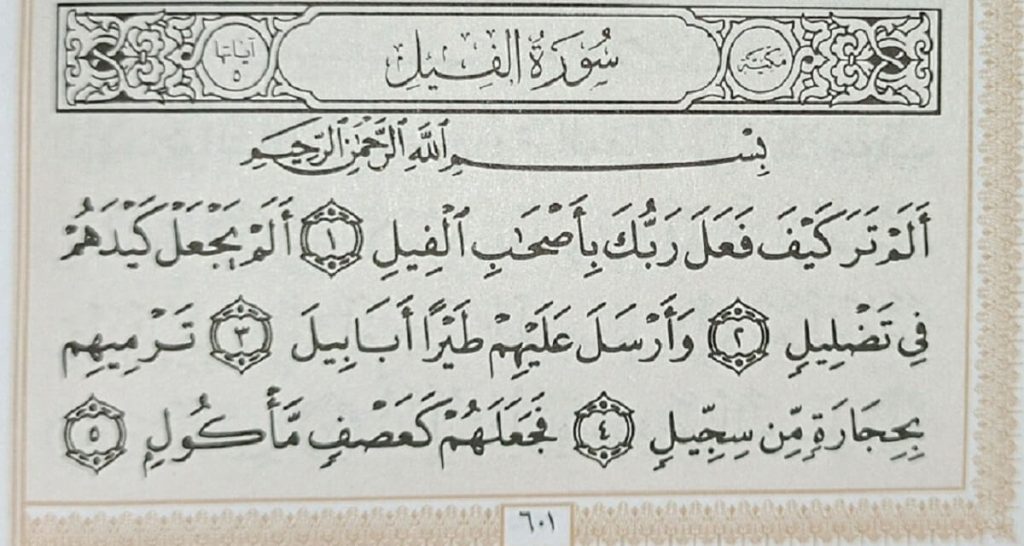 مكية
سُورَةُ الفِيلِ
آياتها ٥
بِسْمِ ٱللَّهِ ٱلرَّحْمَٰنِ ٱلرَّحِيمِ
أَلَمْ تَرَ كَيْفَ فَعَلَ رَبُّكَ بِأَصْحَٰبِ ٱلْفِيلِ ١ أَلَمْ يَجْعَلْ كَيْدَهُمْ
فِي تَضْلِيلٍ ٢ وَأَرْسَلَ عَلَيْهِمْ طَيْرًا أَبَابِيلَ ٣ تَرْمِيهِم
بِحِجَارَةٍ مِّن سِجِّيلٍ ٤ فَجَعَلَهُمْ كَعَصْفٍ مَّأْكُولٍ ٥
٦٠١